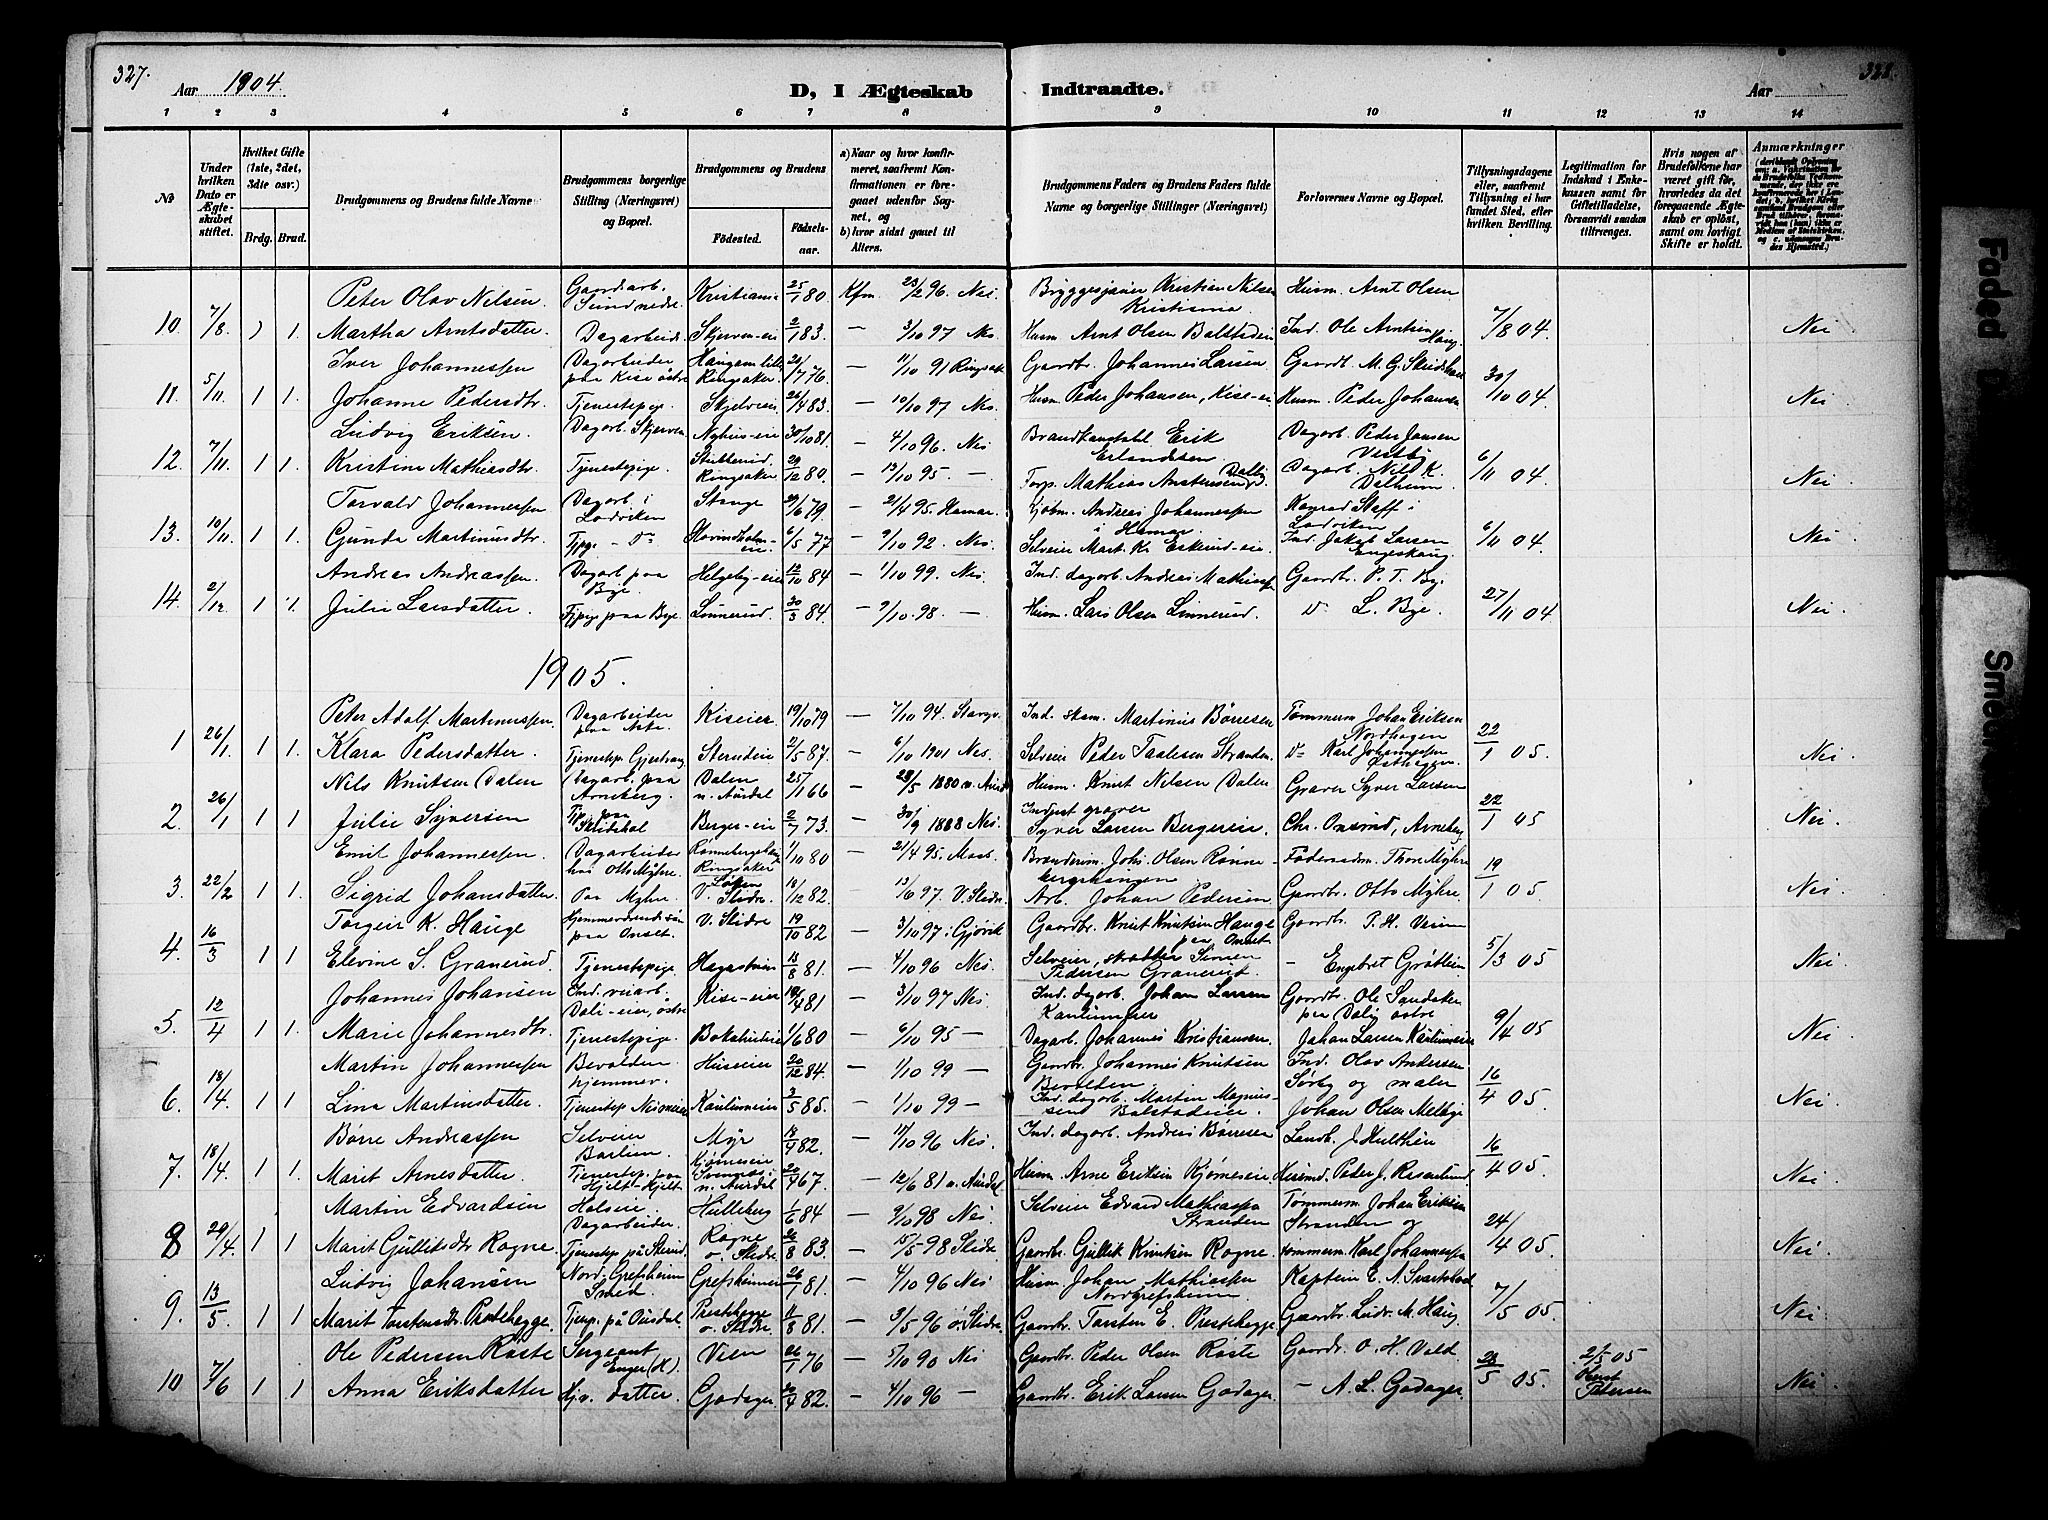 327.
328.
Aar 1904.
D, I Ægteskab Indtraadte.
Aar
1 2 3 4 5 6 7 8 9 10 11 12 13 14
No
Under hvilken Dato er Ægteskabet stiftet.
Hvilket Gifte (1ste, 2det, 3die osv.)
Brdg. Brud.
Brudgommens og Brudens fulde Navne
Brudgommens borgerlige Stilling (Næringsvei) og Bopæl.
Brudgommens og Brudens
Fødested.
Fødselsaar.
a) Naar og hvor konfirmeret, saafremt Konfirmationen er foregaaet udenfor Sognet, og
b) hvor sidst gaaet til Alters.
Brudgommens Faders og Brudens Faders fulde Navne og borgerlige Stillinger (Næringsvei)
Forlovernes Navne og Bopæl.
Tillysningsdagene eller, saafremt Tillysning ei har fundet Sted, efter hvilken Bevilling.
Legitimation for Indskud i Enkekassen samt for Giftetilladelse, forsaavidt saadan tiltrænges.
Hvis nogen af Brudefolkene har været gift før, hvorledes da det foregaaende Ægteskab er opløst, samt om lovligt Skifte er holdt.
Anmærkninger
Peter Olav Nilsen Gaardarb. Sundnedre Kristiania 25/1 80 Kfm 23/2 96. Nes. Bryggesjauer Kristian Nilsen Kristiania Husm. Arnt Olsen
10. 7/8 1 1. Martha Arntsdatter. Dagarbeid. Skjerven-eie 2/1 83. — 3/10 97 Nes Husm Arnt Olsen Balstadeie Ind. Ole Arntsen Haug. 7/8 04 Nei
Iver Johannessen Dagarbeider paa Kise østre Haugam lille Ringsaker 20/7 76. — 11/10 91 Ringsak. Gaardbr. Johannes Larsen Gaardb. M. G. Skredshol
11. 5/11. 1 1. Johanne Pedersdtr. Tjenestepige. Skjelveie 26/4 83. — 10/10 97 Nes. Husm. Peder Johansen, Kise-ei Husm. Peder Johansen 30/10 04 Nei
Ludvig Eriksen. Dagarb. Skjerven Nyhus-eie 30/10 81. — 4/10 96. Nes Brandkonstabl Erik Erlandsen Dagarb. Peder Jansen Vestby
12. 7/11. 1 1. Kristine Mathiasdtr. Tjenestepige. Stubberud, Ringsaker 29/12 80. — 13/10 95. — Forp. Mathias Amstensen Dalby Dagarb. Nils K. Dalheim 6/11 04. Nei
Torvald Johannessen Dagarb. i Lodviken Stange 29/6 79. — 21/4 95. Hamar. Kjøbm. Andreas Johannessen i Hamar Konrad Staff i Lodviken
13. 10/11. 1 1. Gunda Martinusdtr. Tjpge — Do Hovindholm-eie 6/5 77 — 9/10 92. Nes. Selveier Mart. K. Eskerud-eie. Ind. Jakob Larsen Engeskaug. 6/11 04. Nei
Andreas Andreassen. Dagarb paa Bye. Helgeby-eie 12/10 84 — 1/10 99. Nes Ind. dagarb. Andreas Mathiass Gaardbr. P. T. Bye
14. 2/12. 1 1. Julie Larsdatter. Tjpige paa Bye. Linnerud. 30/3 84. — 9/10 98. — Husm. Lars Olsen Linnerud. Do L. Bye. 27/11 04 Nei.
1905.
Peter Adolf Martinussen Dagarbeider paa Aske. Kiseier. 19/10 79 — 7/10 94. Stange. Ind. skom. Martinus Børresen Tømmerm Johan Eriksen Nordhagen
1 26/1. 1 1. Klara Pedersdatter. Tjenestep. Gjestvang Strandeie 2/5 87. — 6/10 1901 Nes. Selveier Peder Taalesen Stranden Do Karl Johannessen Østhagen. 22/1 05. Nei.
Nils Knutsen Dalen Dagarb. paa Arneberg. Dalen n. Aurdal 25/11 66 — 28/5 1880 n. Aurdal Husm. Knut Nilsen Dalen Graver Syver Larsen
2. 26/1 1 1 Julie Syversen Tjp. paa Skredshol Berger-eie 2/7 73. — 30/9 1888 Nes. Indjust graver Syver Larsen Bergereie. Chr. Onsrud, Arneberg 22/1 05 Nei.
Emil Johannessen. Dagarbeider hos Otto Myhre. Rønnebergshaug Ringsaker 1/10 80 — 21/4 95. Moss. Brænderim. Johs. Olsen Rønnebergshaugen Føderaadsm. Thore Myhre
3. 22/2 1 1 Sigrid Johansdatter. Paa Myhre. V. Slidre. 18/12 82. — 13/6 97 V. Slidre. Arb. Johan Pedersen Gaardbr. Otto Myhre 19/1 05 Nei
Torgeir K. Hauge Hjemmeværende søn paa Onset. V. Slidre 19/10 82 — 3/10 97 i Gjøvik Gaardbr. Knut Knutsen Hauge paa Onset. Gaardbr. P. H. Veum
4. 16/3 1 1 Elevine S. Granerud. Tjenestepige. Hagastueie 18/8 81. — 4/10 96 Nes Selveier, skrædder Simen Pedersen Granerud — Engebret Grøtlien 5/3 05 Nei.
Johannes Johansen Ind. veiarb. Dæli-eie, østre Kise-eier 16/4 81 — 3/10 97 Nes Ind. dagarb. Johan Larsen Kantumeie Gaardbr. Ole Sandaker paa Dælig østre
5. 12/4 1 1. Marie Johannesdtr. Tjenestepige. 1/6 80 — 6/10 95 — Dagarb. Johannes Kristiansen. Johan Larsen Kantumeie 9/4 05 Nei
Martin Johannessen Bevolden hjemmev. Huseier 20/12 84. — 1/10 99 — Gaardbr. Johannes Knutsen Bevolden. Ind. Olav Andersen Sørby og maler
6. 18/4. 1 1 Lina Martinsdatter. Tjenestep. Kantumeie 3/5 85. — 1/10 99 — Ind. dagarb. Martin Magnussen Balstadeier. Johan Olsen Melbye 16/4 05. Nei.
Børre Andreassen Selveier Baclien. Myr Kjømeseie 18/9 82. — 11/10 96 Nes. Ind. dagarb. Andreas Børresen Landh. J. Hulthin
7. 18/4. 1 1. Marit Arnesdatter. Tjenestep. paa Hjelt-Kjelt n. Aurdal 20/4 67 — 12/6 81 n. Aurdal Husm. Arne Eriksen Kjømeseie Husmd. Peder J. Rosenlund 16/4 05. Nei.
Martin Edvardsen Holseie Dagarbeider. Hulleberg 1/6 84 — 9/10 98 Nes. Selveier Edvard Mathiassen Stranden Tømmerm. Johan Eriksen Stranden og
8 29/4. 1 1 Marit Gullitsdtr Rogne. Tjenestep på Stenrud Rogne ø. Slidre 30/8 83. — 15/5 98 Slidre Gaardbr. Gullik Knutsen Rogne tømmerm. Karl Johannessen 24/4 05. Nei.
Ludvig Johansen Nord-Grefsheim Smed. Grefsheimeie 26/7 81. — 4/10 96 Nes Husm. Johan Mathiassen Nordgrefsheim. Kaptein E. A. Svartebæk
9. 13/5. 1 1 Marit Torstensdtr Prestehegge. Tjenp. på Ousdal. Prestehegge ø. Slidre 11/8 81. — 3/5 96 ø. Slidre. Gaardbr. Torsten E. Prestehegge Gaardbr. Ludv. M. Haug. 7/5 05. Nei.
Ole Pedersen Roste Sergeant Enger (H). Veen 26/1 76 — 5/10 90 Nes Gaardbr. Peder Olsen Roste Gaardbr. O. H. Vold 2/5 05
10 7/6 1 1 Anna Eriksdatter Hjv. datter. Godager. 30/4 82. — 4/10 96 — Gaardbr. Erik Larsen Godager — A. L. Godager. 28/5 05. Oberst Petersen Nei.
Faded D
Sme